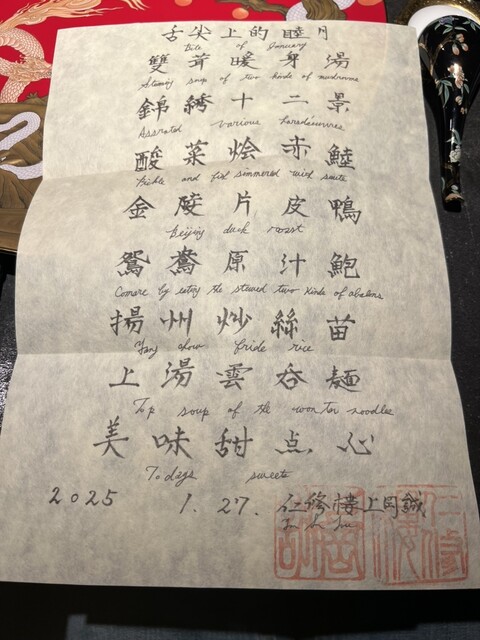 舌尖上的睦月
Bite of January
雙茸暖身湯
Steming soup of two kinde of mushrooms
錦綉十二景
Assrated various
酸菜烩赤鯥
Pickle and fish simmered with
金陵片皮鴨
Beijing duck roast
鴛鴦原汁鮑
Comare by eating the stewed two kinde of abalone
揚州炒絲苗
Yang chow fride rice
上湯雲吞麺
Top soup of the won ton noodles
美味甜点心
Todays sweets
2025 1. 27. 仁修樓上岡誠